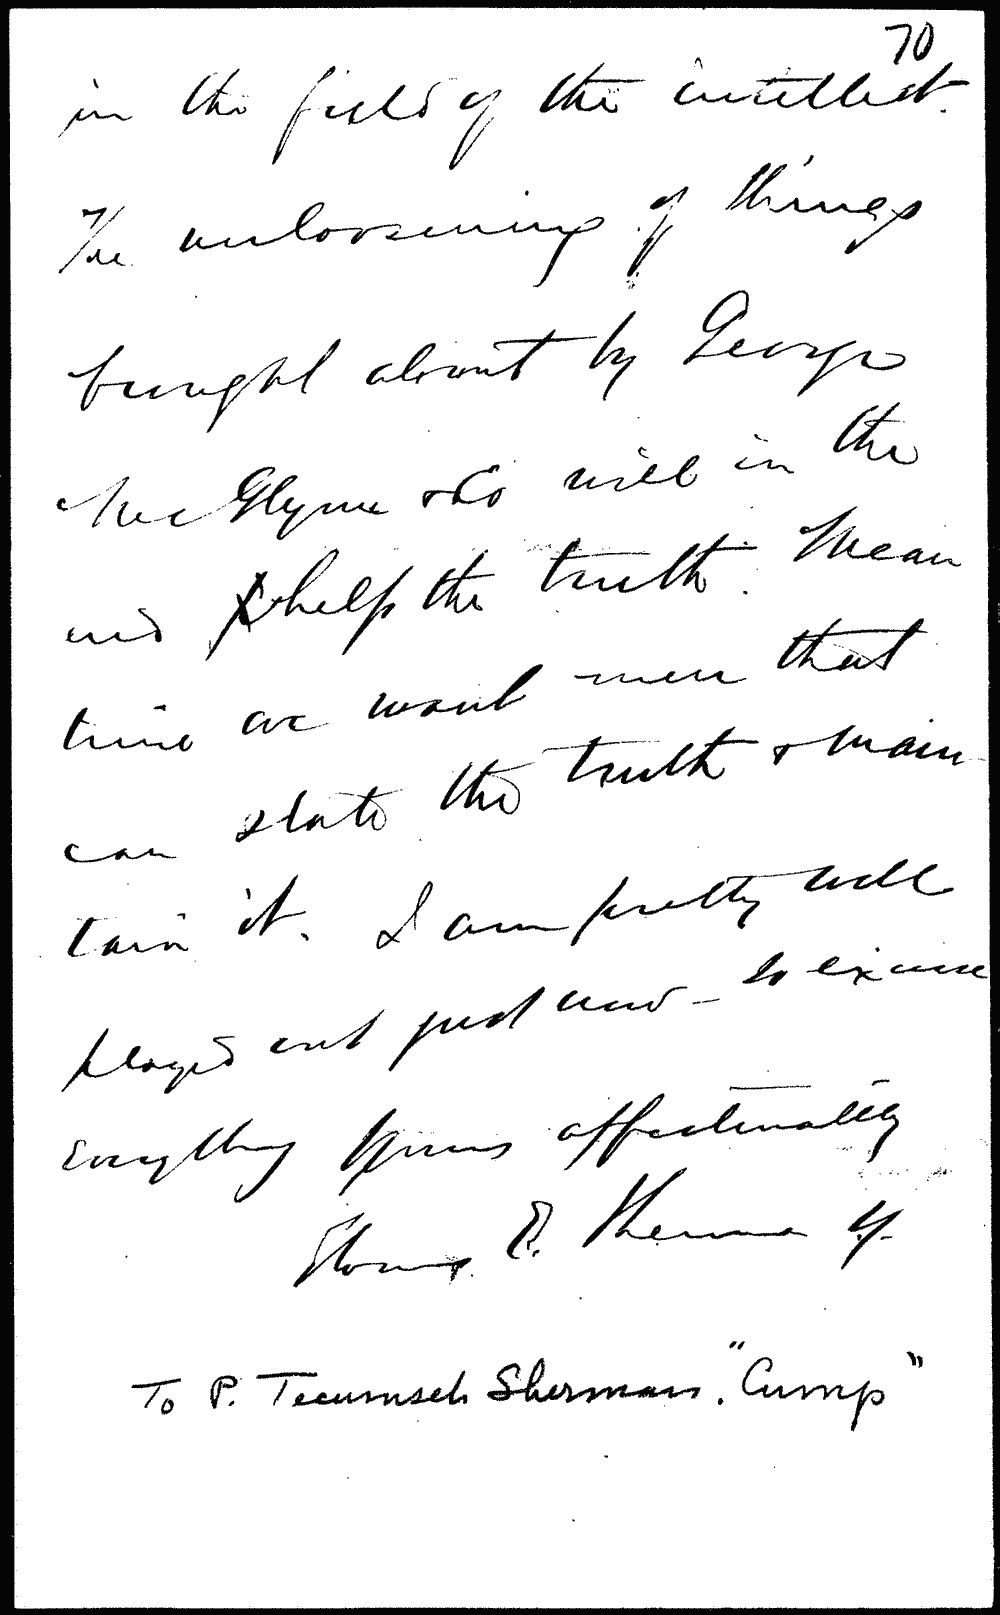 70
in the field of the intellect.
The unloosening of things
brought about by George
McGlynn & Co will in the
end help the truth. Mean
time we want men that
can state the truth & main-
tain it. I am pretty well
played out just now - so excuse
everything Yours affectionately
Thomas E. Sherman SJ.
To P. Tecumseh Sherman. "Cump"